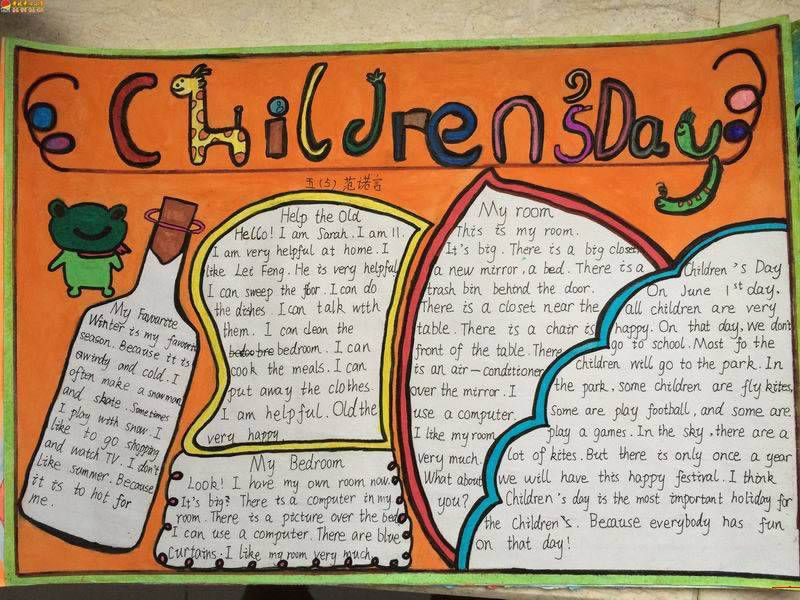 Children's Day
五(5) 范诺言
Help the Old
Hello! I am Sarah. I am 11.
I am very helpful at home. I
like Lei Feng. He is very helpful
I can sweep the floor. I can do
the dishes. I can talk with
them. I can clean the
bedroom. I can
cook the meals. I can
put away the clothes.
I am helpful. Old the
very happy.
My room
This is my room.
It's big. There is a big closet,
a new mirror, a bed. There is a
trash bin behind the door.
There is a closet near the
table. There is a chair is
front of the table. There
is an air-conditioner
over the mirror. I
use a computer.
I like my room
very much.
What about
you?
Children's Day
On June 1st day,
all children are very
happy. On that day, we don't
go to school. Most fo the
children will go to the park. In
the park, some children are fly kites,
Some are play football, and some are
play a games. In the sky, there are a
lot of kites. But there is only once a year
we will have this happy festival. I think
Children's day is the most important holiday for
the children's. Because everybody has fun
on that day!
My Favourite
Winter is my favourite
season. Because it is
windy and cold. I
often make a snowman
and skate. Sometimes
I play with snow. I
like to go shopping
and watch TV. I don't
like summer. Because
it is to hot for
me.
My Bedroom
Look! I have my own room now.
It's big? There is a computer in my
room. There is a picture over the bed
I can use a computer. There are blue
curtains. I like my room very much.